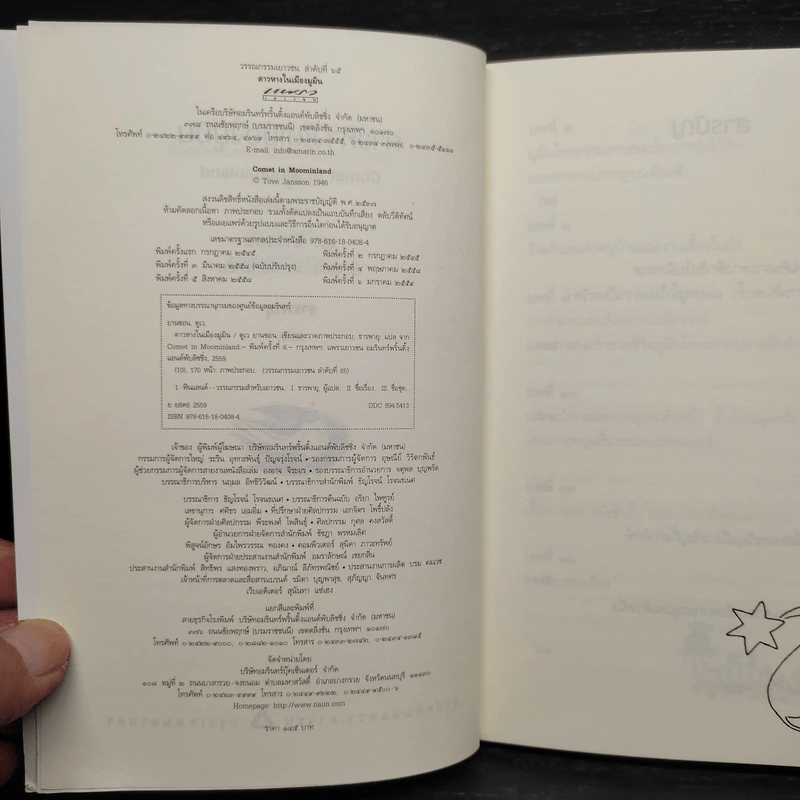 วรรณกรรมเยาวชน ลำดับที่ ๖๕
ดาวหางในเมืองมูมิน
แพรว
เยาวชน
ในเครือบริษัทอมรินทร์พริ้นติ้งแอนด์พับลิชชิ่ง จำกัด (มหาชน)
๓๗๘ ถนนชัยพฤกษ์ (บรมราชชนนี) เขตตลิ่งชัน กรุงเทพฯ ๑๐๑๗๐
โทรศัพท์ ๐-๒๔๒๒-๙๙๙๙ ต่อ ๔๙๖๔, ๔๙๖๙ โทรสาร ๐-๒๔๓๔-๓๕๕๕, ๐-๒๔๓๔-๓๗๗๗, ๐-๒๔๓๕-๕๑๑๑
E-mail: info@amarin.co.th
Comet in Moominland
© Tove Jansson 1946
สงวนลิขสิทธิ์หนังสือเล่มนี้ตามพระราชบัญญัติ พ.ศ. ๒๕๓๗
ห้ามคัดลอกเนื้อหา ภาพประกอบ รวมทั้งดัดแปลงเป็นแถบบันทึกเสียง ตลับวีดิทัศน์
หรือเผยแพร่ด้วยรูปแบบและวิธีการอื่นใดก่อนได้รับอนุญาต
เลขมาตรฐานสากลประจำหนังสือ 978-616-18-0408-4
พิมพ์ครั้งแรก กรกฎาคม ๒๕๔๕ พิมพ์ครั้งที่ ๒ กรกฎาคม ๒๕๔๕
พิมพ์ครั้งที่ ๓ มีนาคม ๒๕๕๘ (ฉบับปรับปรุง) พิมพ์ครั้งที่ ๔ พฤษภาคม ๒๕๕๘
พิมพ์ครั้งที่ ๕ สิงหาคม ๒๕๕๘ พิมพ์ครั้งที่ ๖ มกราคม ๒๕๕๙
ข้อมูลทางบรรณานุกรมของศูนย์ข้อมูลอมรินทร์
ยานซอน, ตูเว.
ดาวหางในเมืองมูมิน / ตูเว ยานซอน: เขียนและวาดภาพประกอบ, ธารพายุ: แปล จาก
Comet in Moominland.-- พิมพ์ครั้งที่ 6.-- กรุงเทพฯ: แพรวเยาวชน อมรินทร์พริ้นติ้ง
แอนด์พับลิชชิ่ง, 2559.
(10), 170 หน้า: ภาพประกอบ. (วรรณกรรมเยาวชน ลำดับที่ 65)
1. ฟินแลนด์--วรรณกรรมสำหรับเยาวชน. I. ธารพายุ, ผู้แปล. II. ชื่อเรื่อง. III. ชื่อชุด.
2559 DDC 894.5413
ISBN 978-616-18-0408-4
เจ้าของ ผู้พิมพ์ผู้โฆษณา บริษัทอมรินทร์พริ้นติ้งแอนด์พับลิชชิ่ง จำกัด (มหาชน)
กรรมการผู้จัดการใหญ่ ระริน อุทกะพันธุ์ ปัญจรุ่งโรจน์ • รองกรรมการผู้จัดการ อุษณีย์ วิรัตกพันธ์
ผู้ช่วยกรรมการผู้จัดการสายงานหนังสือเล่ม องอาจ จิระอร • รองบรรณาธิการอำนวยการ จตุพล บุญพรัด
บรรณาธิการบริหาร นฤมล อิทธิวิวัฒน์ • บรรณาธิการสำนักพิมพ์ ธัญโรจน์ โรจนธเนศ
บรรณาธิการ ธัญโรจน์ โรจนธเนศ • บรรณาธิการต้นฉบับ อริยา ไพฑูรย์
เลขานุการ ศศิธร เอมอิ่ม • ที่ปรึกษาฝ่ายศิลปกรรม เอกจิตร โพธิ์ปลั่ง
ผู้จัดการฝ่ายศิลปกรรม พีระพงศ์ โพสินธุ์ • ศิลปกรรม กุศล คงสวัสดิ์
ผู้อำนวยการฝ่ายสำนักพิมพ์ ชัชฎา พรหมเลิศ
พิสูจน์อักษร อัมไพวรรณ ทองคง • คอมพิวเตอร์ สุนิดา ภาวะทรัพย์
ผู้จัดการฝ่ายประสานงานสำนักพิมพ์ อมราลักษณ์ เชยกลิ่น
ประสานงานสำนักพิมพ์ สิทธิพร แสงทองพราว, อภิมาณ์ ลีภัทรพณิชย์ • ประสานงานการผลิต บรม คมเวช
เจ้าหน้าที่การตลาดและสื่อสารแบรนด์ รมิตา บุญพาสุข, สุภัญญา จันทศร
เว็บเอดิเตอร์ สุนันทา แซ่เฮง
แยกสีและพิมพ์ที่
สายธุรกิจโรงพิมพ์ บริษัทอมรินทร์พริ้นติ้งแอนด์พับลิชชิ่ง จำกัด (มหาชน)
๓๗๖ ถนนชัยพฤกษ์ (บรมราชชนนี) เขตตลิ่งชัน กรุงเทพฯ ๑๐๑๗๐
โทรศัพท์ ๐-๒๔๒๒-๙๐๐๐, ๐-๒๘๘๒-๑๐๑๐ โทรสาร ๐-๒๔๓๓-๒๗๔๒, ๐-๒๔๓๔-๑๓๘๕
จัดจำหน่ายโดย
บริษัทอมรินทร์บุ๊คเซ็นเตอร์ จำกัด
๑๐๘ หมู่ที่ ๒ ถนนบางกรวย-จงถนอม ตำบลมหาสวัสดิ์ อำเภอบางกรวย จังหวัดนนทบุรี ๑๑๑๓๐
โทรศัพท์ ๐-๒๔๒๓-๙๙๙๙ โทรสาร ๐-๒๔๔๙-๙๒๒๒, ๐-๒๔๔๙-๙๕๐๐-๖
Homepage: http://www.naiin.com
ราคา ๑๔๕ บาท